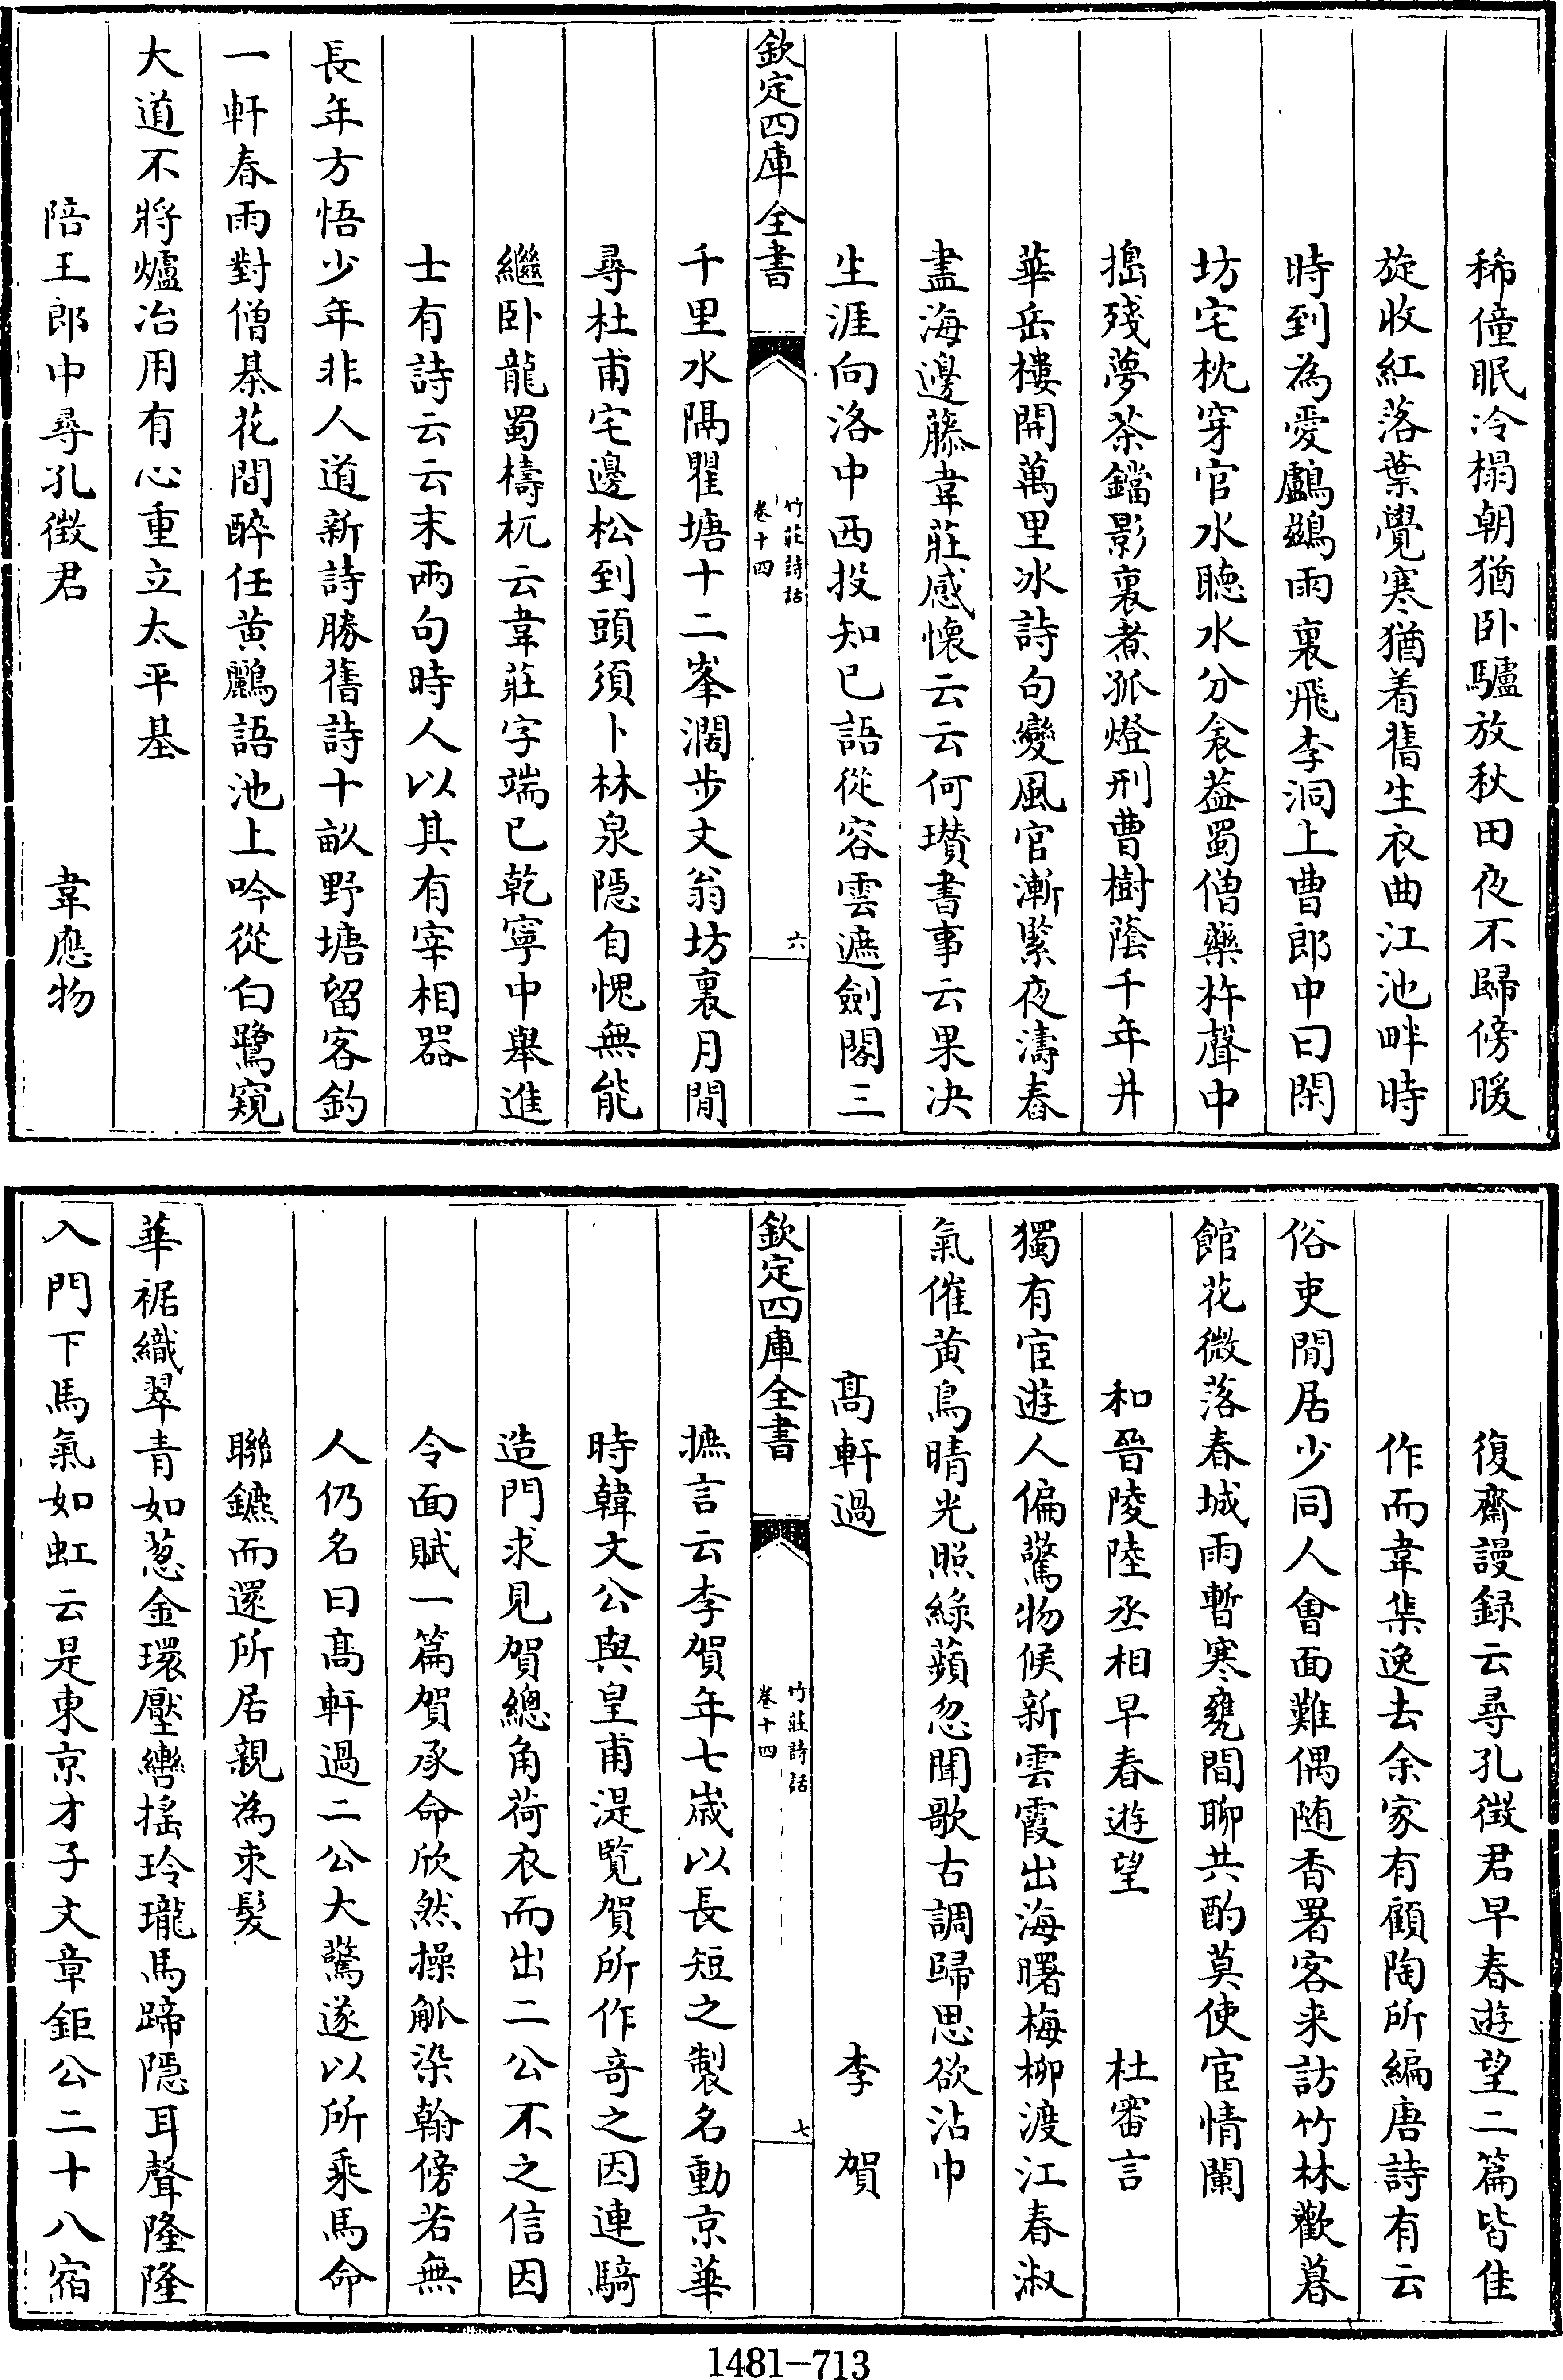 稀僮眠冷榻朝猶卧驢放秋田夜不歸傍暖
旋收紅落葉覺寒猶着舊生衣曲江池畔時
時到為愛鸕鷀雨裏飛李洞上曹郎中曰閑
坊宅枕穿官水聽水分衾葢蜀僧藥杵聲中
搗殘夢茶鐺影裏煮孤燈刑曹樹蔭千年井
華岳樓開萬里冰詩句變風官漸緊夜濤舂
盡海邊藤韋莊感懷云云何瓚書事云果決
生涯向洛中西投知已語從容雲遮劍閣三
欽定四庫全書
竹莊詩話
卷十四
六
千里水隔瞿塘十二峯濶步文翁坊裏月閒
尋杜甫宅邊松到頭須卜林泉隱自愧無能
繼卧龍蜀檮杌云韋莊字端已乾寧中舉進
士有詩云云末兩句時人以其有宰相器
長年方悟少年非人道新詩勝舊詩十畝野塘留客釣
一軒春雨對僧棊花間醉任黄鸝語池上吟從白鷺窺
大道不將爐冶用有心重立太平基
陪王郎中尋孔徴君　韋應物
復齋謾録云尋孔徴君早春遊望二篇皆佳
作而韋集逸去余家有顧陶所編唐詩有云
俗吏閒居少同人會面難偶随香署客来訪竹林歡暮
館花微落春城雨暫寒甕間聊共酌莫使宦情闌
和晉陵陸丞相早春遊望　杜審言
獨有宦遊人偏驚物候新雲霞出海曙梅柳渡江春淑
氣催黄鳥晴光照綠蘋忽聞歌古調歸思欲沾巾
高軒過　李賀
欽定四庫全書
竹莊詩話
卷十四
七
摭言云李賀年七歳以長短之製名動京華
時韓文公與皇甫湜覽賀所作奇之因連騎
造門求見賀總角荷衣而出二公不之信因
令面賦一篇賀承命欣然操觚染翰傍若無
人仍名曰高軒過二公大驚遂以所乘馬命
聯鑣而還所居親為束髮
華裾織翠青如葱金環壓轡揺玲瓏馬蹄隱耳聲隆隆
入門下馬氣如虹云是東京才子文章鉅公二十八宿
1481-713